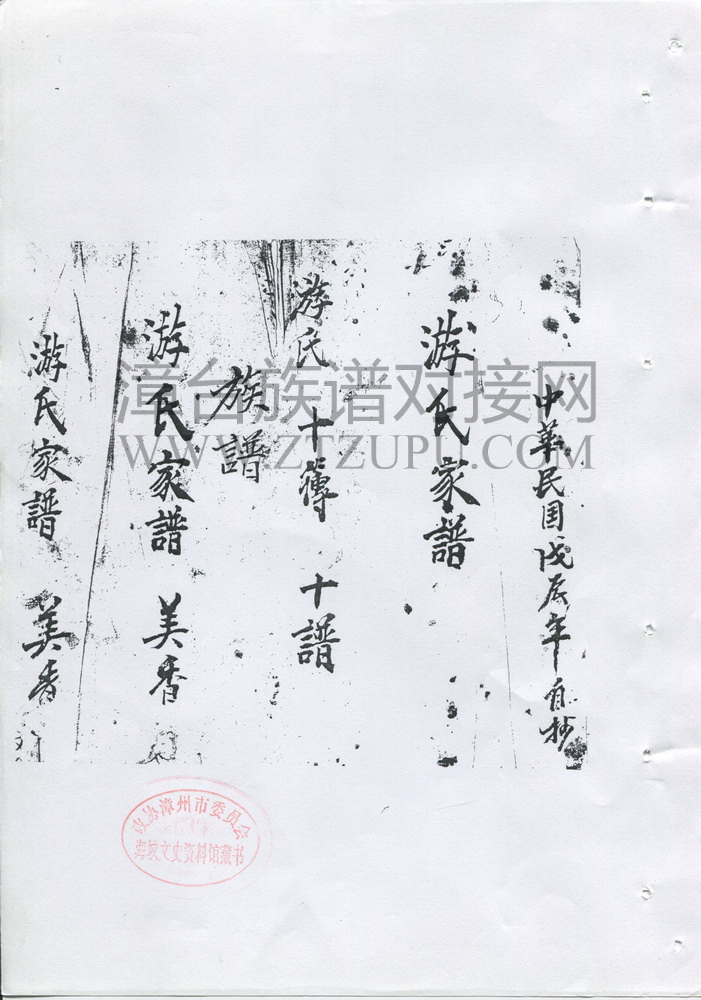 中華民国戊辰年自抄
游氏家譜
游氏 十簿 十譜
族譜
游氏家譜 美香
游氏家譜 美香
漳台族谱对接网
WWW.ZTZUPU.COM
政协漳州市委员会
海峡文史资料馆藏书